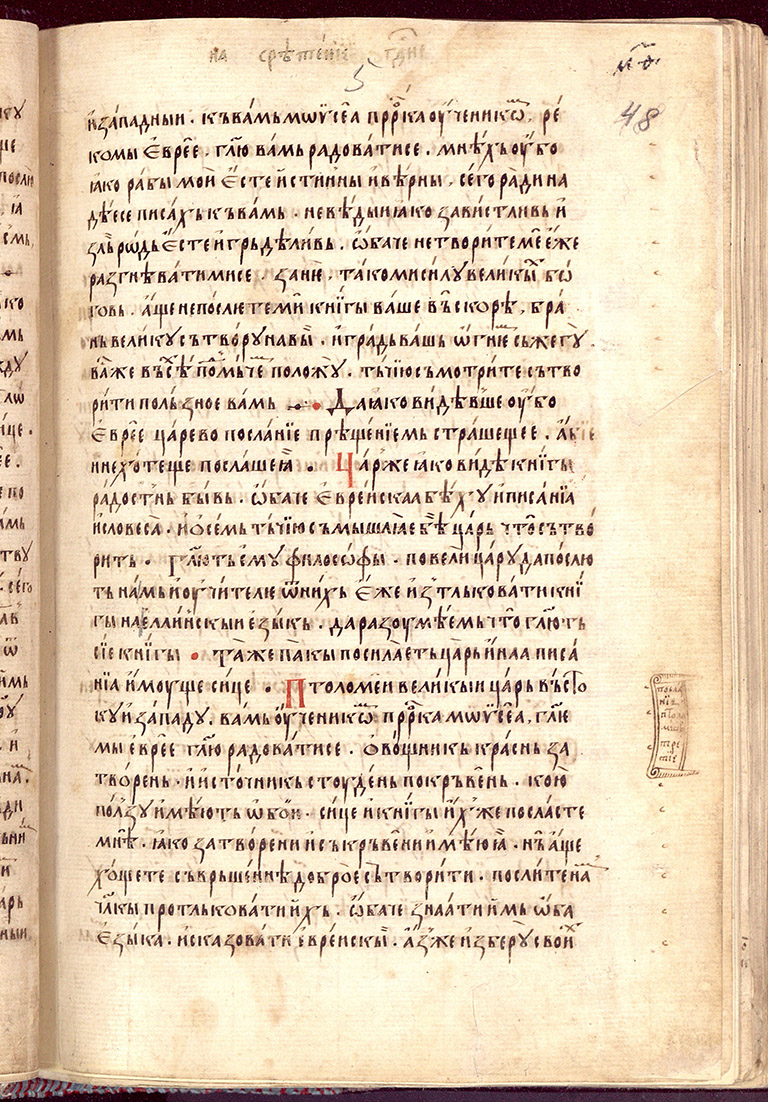 на срѣтенїе гдⷭ҇не
м҃ѳ·
48
и҆за́падныи · къва́мьмѡѷсе́а прⷪ҇рка оу҆ченикѡⷨ, ре́
комы є҆вре́е · гл҃ю ва́мь радова́тисе · мнѣ́хъ оу҆́бо
ꙗ҆ко рабы мои́ є҆́сте и҆́стин̾ны и҆вѣ́рны · сего̀ ра́ди на
дѣ́есе писа́хь къва́мь · невѣ́дыи ꙗ҆ко зави́стливь и҆
зльро́дь є҆́сте и҆грьдѣли́вь · ѻ҆ба́че нетвори́те мѐ є҆́же
разгнѣ́ватимисе · занѐ · та́ко ми си́лу вели́кыⷯ бѡ́
говь · а҆́ще непослю́те мѝ кни́гы ва́ше въскорѣ̀, бра́
нь вели́ку сътвору̀ на вы̀ · и҆гра́дь ва́шь ѻ҆гнѥ́мⷨ сьжегу̀
ва́же въсѣⷯ по́мьче поло́жу · тъ́чїю съмотри́те сътво
ри́ти поль́зное ва́мь · Да ꙗ҆ко ви́дѣвше оу҆́бо
є҆вре́е ца́рево посла́нїе прѣще́нїемь стра́шещее · а҆́бїе
и нехо́теще посла́ше ꙗ҆̀ · Ца́р̾ же ꙗ҆ко ви́дѣ кни́гы
ра́достнь бы́вь · ѻ҆ба́че є҆вре́искаа бѣ́хꙋ и҆писа́нїа
и҆словеса̀ · и҆ ѻ҆се́мь тъ́чїю съмышлꙗ́аше ца́рь что̀ сътво́
рить · Гл҃ють е҆му фило́софы · повелѝ ца́ру да послю́
ть на́мь и҆оу҆чи́телю ѿни́хь є҆́же и҆зтлькова́ти кнї́
гы на є҆́лин̾скыи є҆зы́кь · да разꙋмѣ́емь что̀ гл҃ють
сїе́ кни́гы · Та́же па́кы посила́еть ца́рь и҆́наа писа́
нїа и҆моу́ще си́це · Птоломе́и вели́кыи ца́рь въстоⷦ҇
ку и҆ за́паду, ва́мь оу҆́ченикѡⷨ прⷪ҇рка мѡѷсе́а, гл҃ю
мы є҆вре́е гл҃ю ра́доватисе · ѻ҆во́щникь кра́снь за
тво́рень · и҆ и҆сто́чникь стоуде́нь покръве́нь · кою̀
по́лзу и҆мѣ́ють ѻ҆бои́ · си́це и҆ кни́гы и҆́хже посла́сте
мнѣ̀ · ꙗ҆ко затво́рени и҆съкръве́ни и҆мѣ́ю ꙗ҆̀ · нь а҆́ще
хо́щете съвръше́ннѣ до́брое сътвори́ти · посли́те наⷨ
чл҃кы протлькова́ти и҆́хь · ѻ҆ба́че зна́ати и҆́мь ѻ҆ба
є҆зы́ка · и҆сказова́ти є҆вре́искыⷨ · а҆́зже и҆зберу̀ свои́ⷯ
посла
нїе
птоло
меѡ
тре
тїе